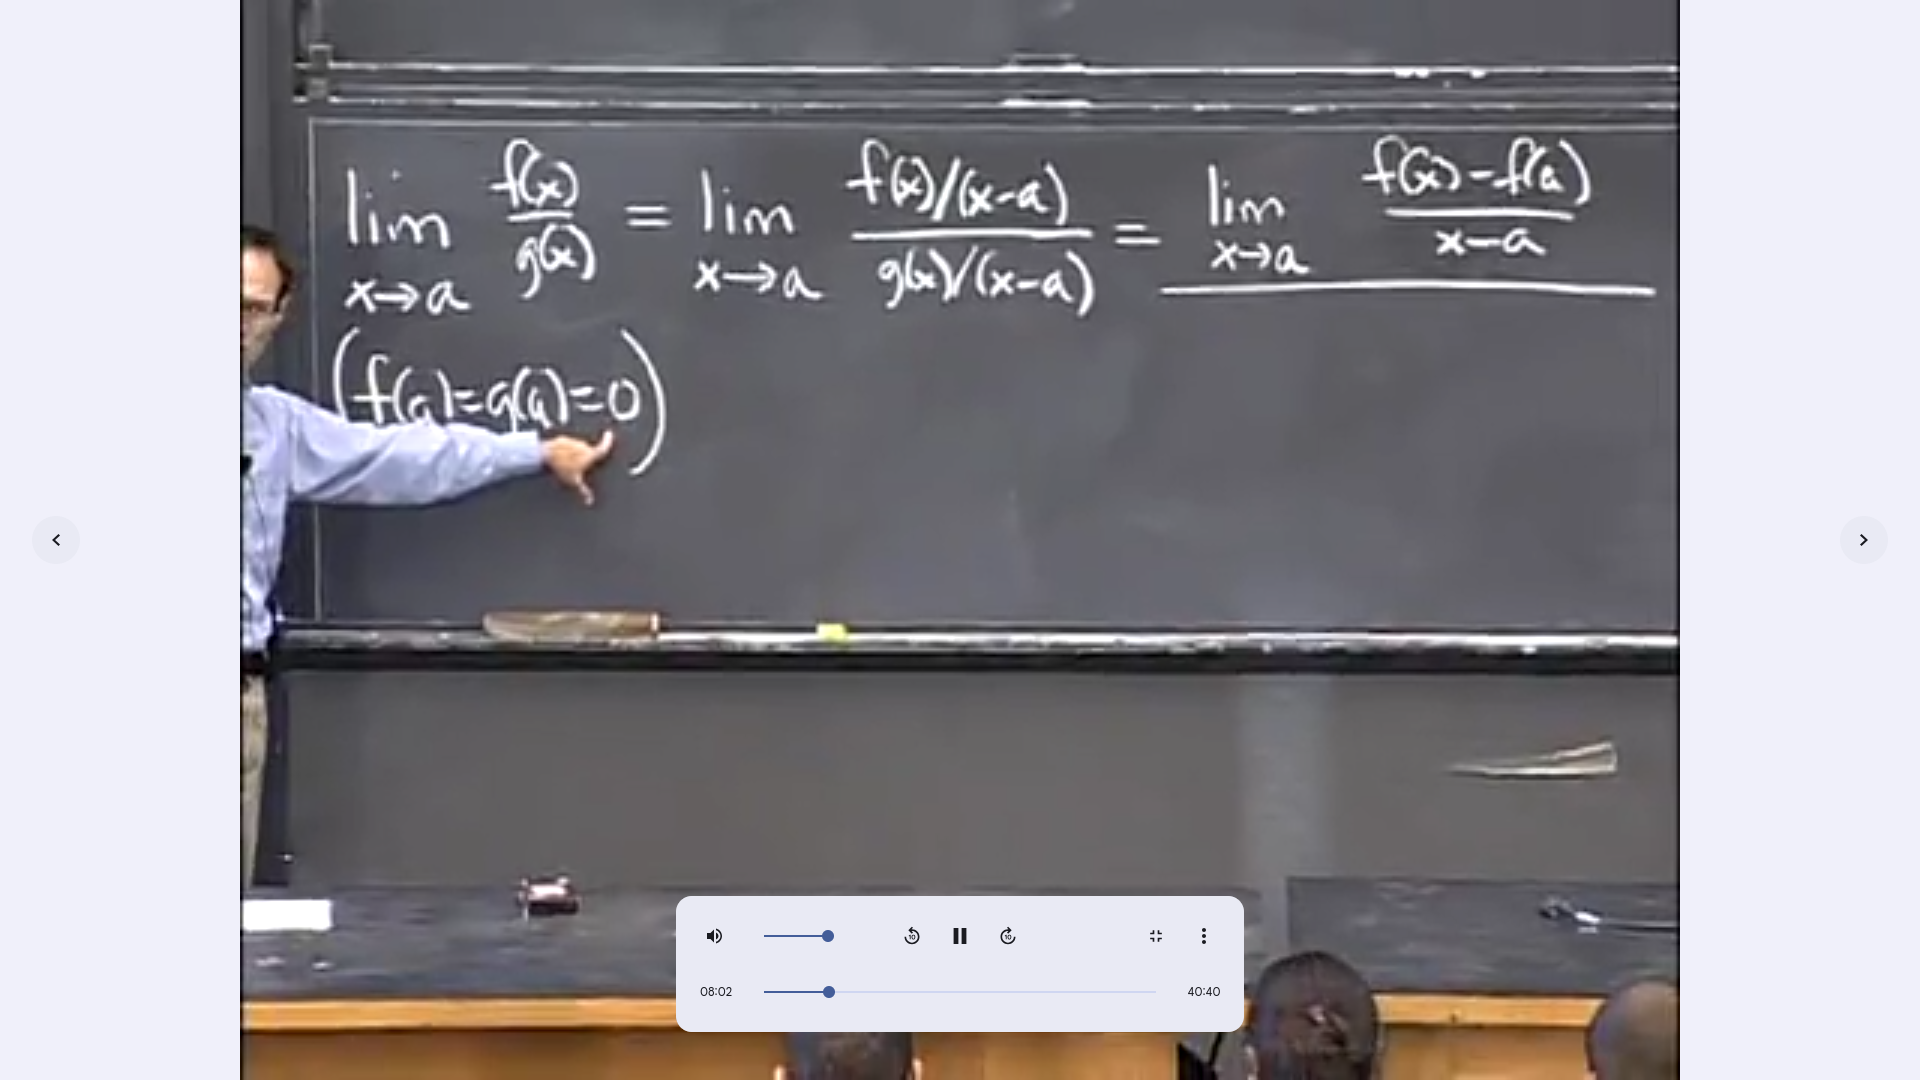 lim x→a f(x)/g(x) = lim x→a f(x)/(x-a) / g(x)/(x-a) = lim x→a f(x)-f(a) / x-a
(f(a)=g(a)=0)
10
10
08:02
40:40